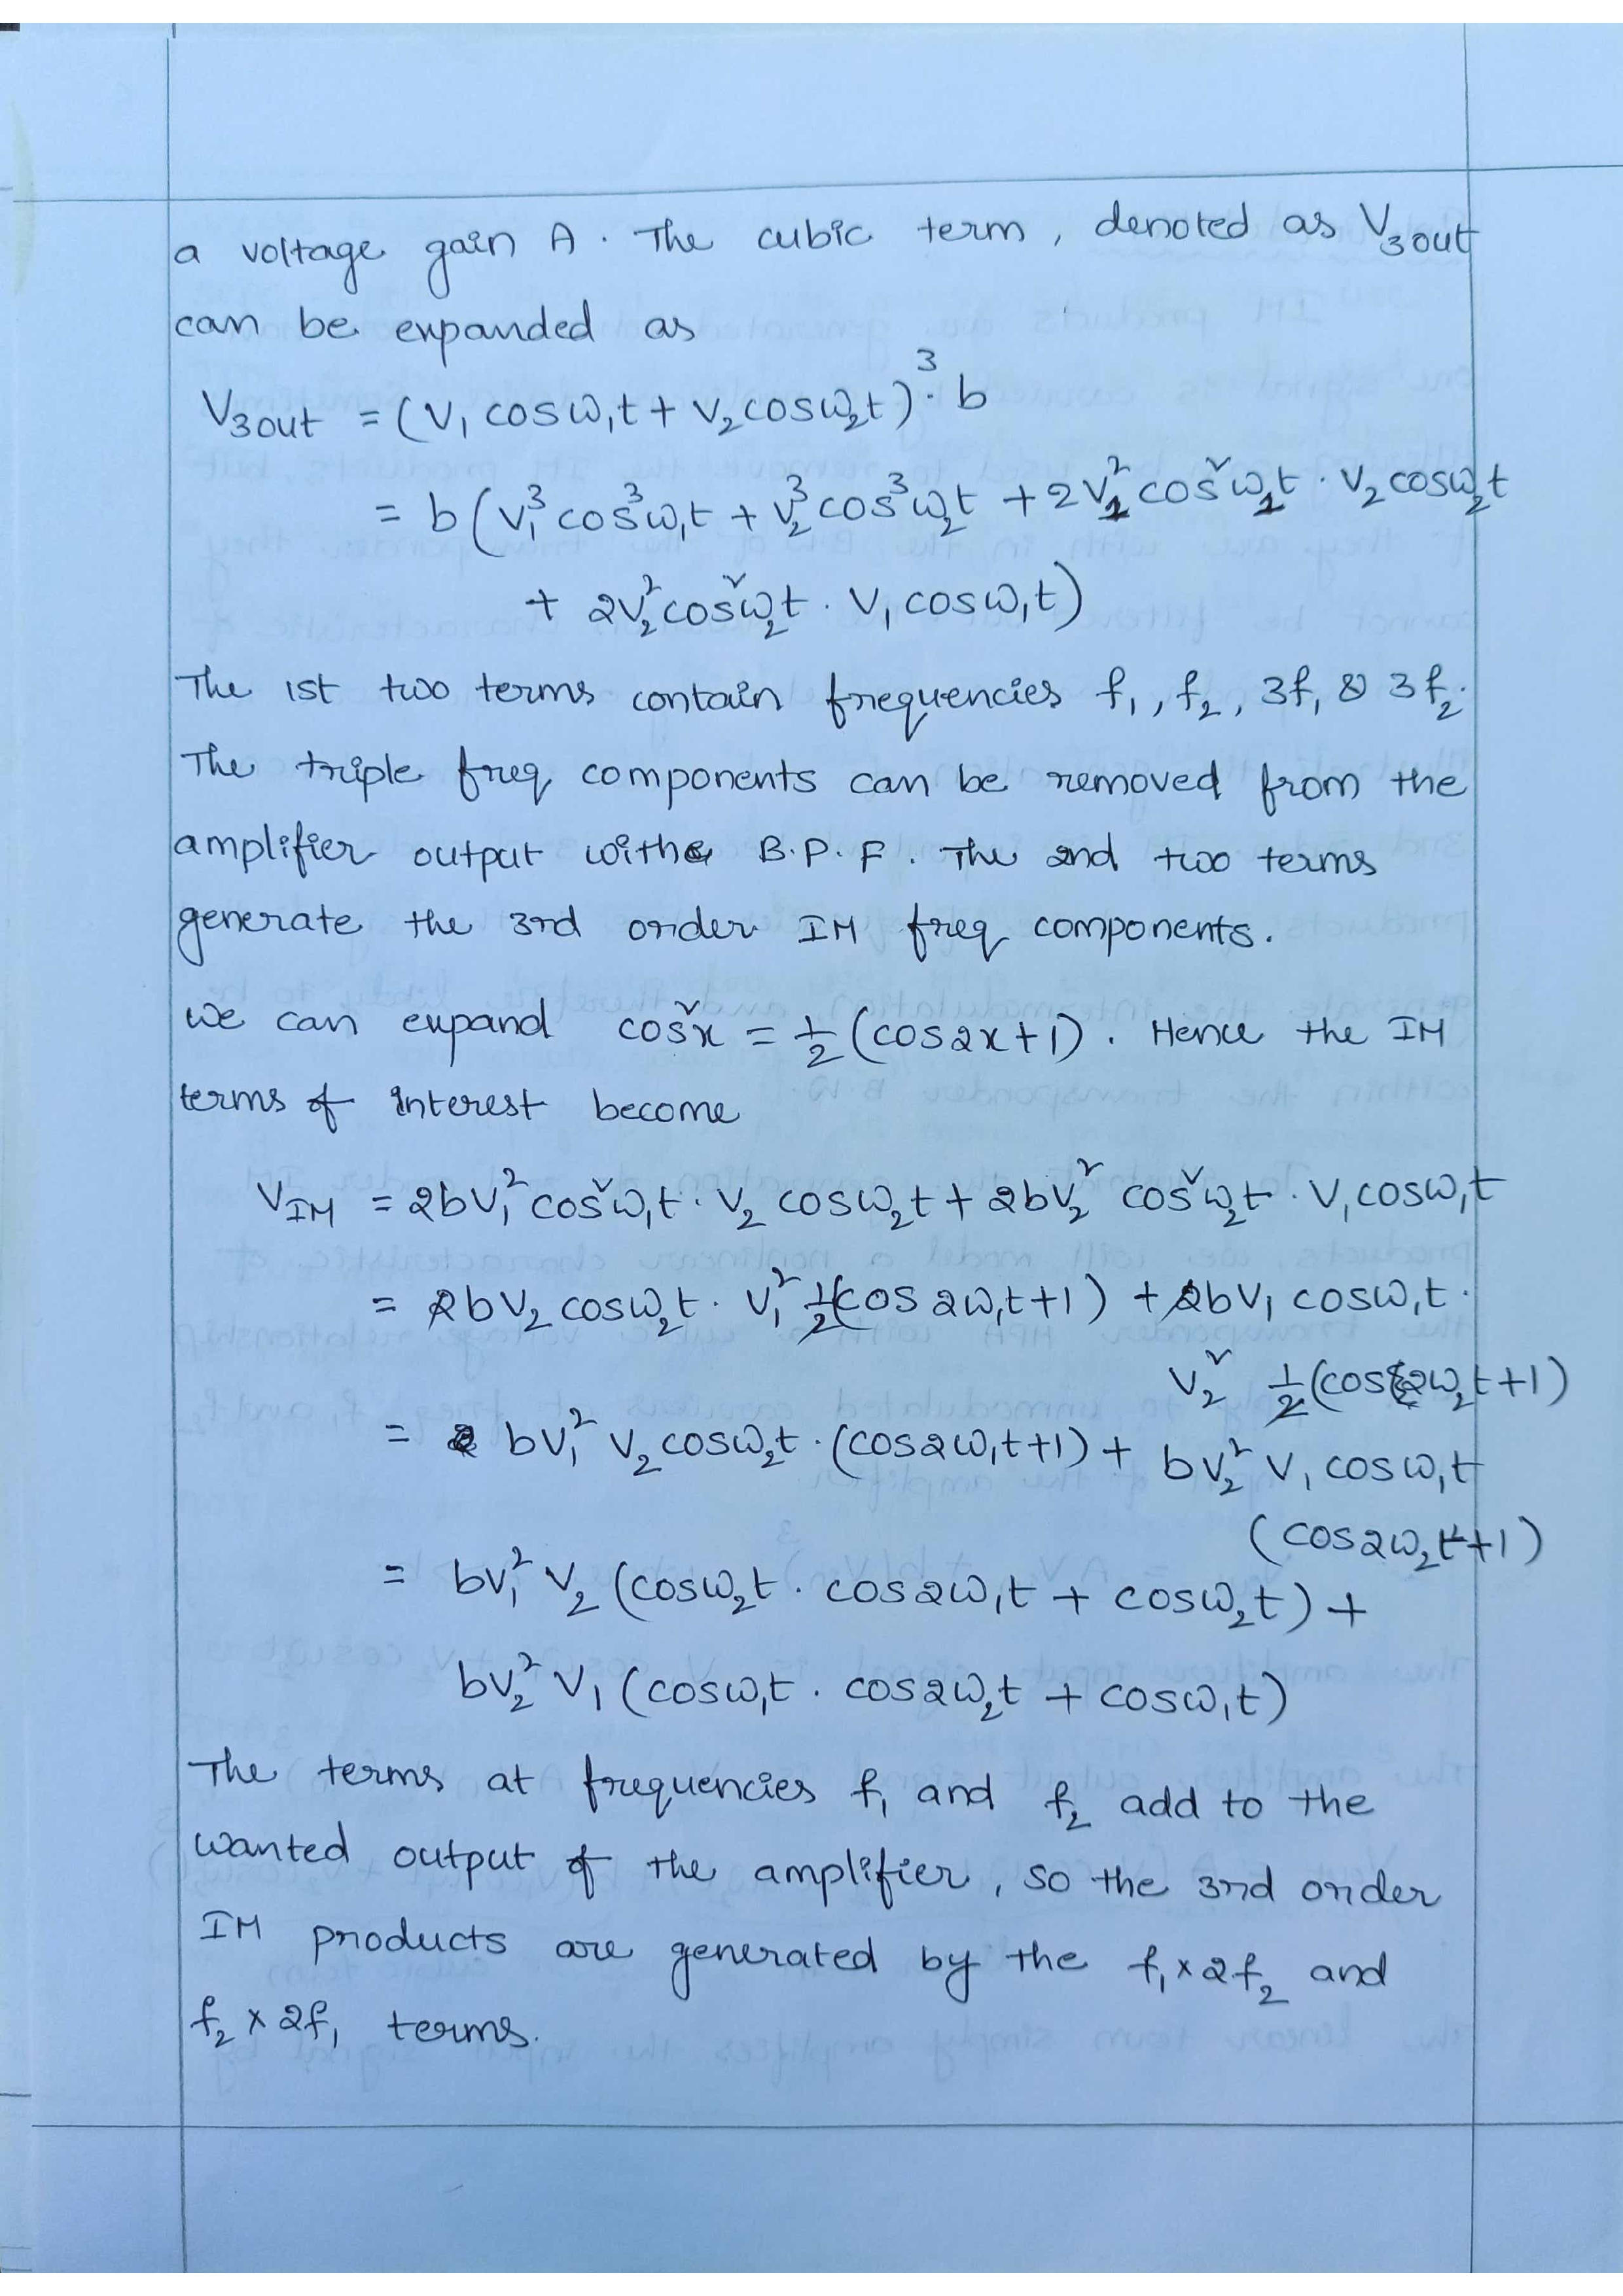 a voltage gain A. The cubic term, denoted as V₃out
can be expanded as
V₃out = (V₁ cosω₁t + V₂ cosω₂t)³. b
= b(V₁³ cos³ω₁t + V₂³ cos³ω₂t + 2V₁² cos²ω₁t . V₂ cosω₂t
+ 2V₂² cos²ω₂t . V₁ cosω₁t)
The 1st two terms contain frequencies f₁, f₂, 3f₁ & 3f₂.
The triple freq components can be removed from the
amplifier output with B.P.F. The 2nd two terms
generate the 3rd order IM freq components.
We can expand cos²x = ½ (cos2x+1). Hence the IM
terms of interest become
V_IM = 2bV₁² cos²ω₁t . V₂ cosω₂t + 2bV₂² cos²ω₂t . V₁ cosω₁t
= 2bV₂ cosω₂t . V₁² ½(cos 2ω₁t+1) + 2bV₁ cosω₁t .
V₂² ½ (cos2ω₂t+1)
= bV₁² V₂ cosω₂t . (cos2ω₁t+1) + bV₂² V₁ cosω₁t
(cos2ω₂t+1)
= bV₁² V₂ (cosω₂t . cos2ω₁t + cosω₂t) +
bV₂² V₁ (cosω₁t . cos2ω₂t + cosω₁t)
The terms at frequencies f₁ and f₂ add to the
wanted output of the amplifier, so the 3rd order
IM products are generated by the f₁ x 2f₂ and
f₂ x 2f₁ terms.